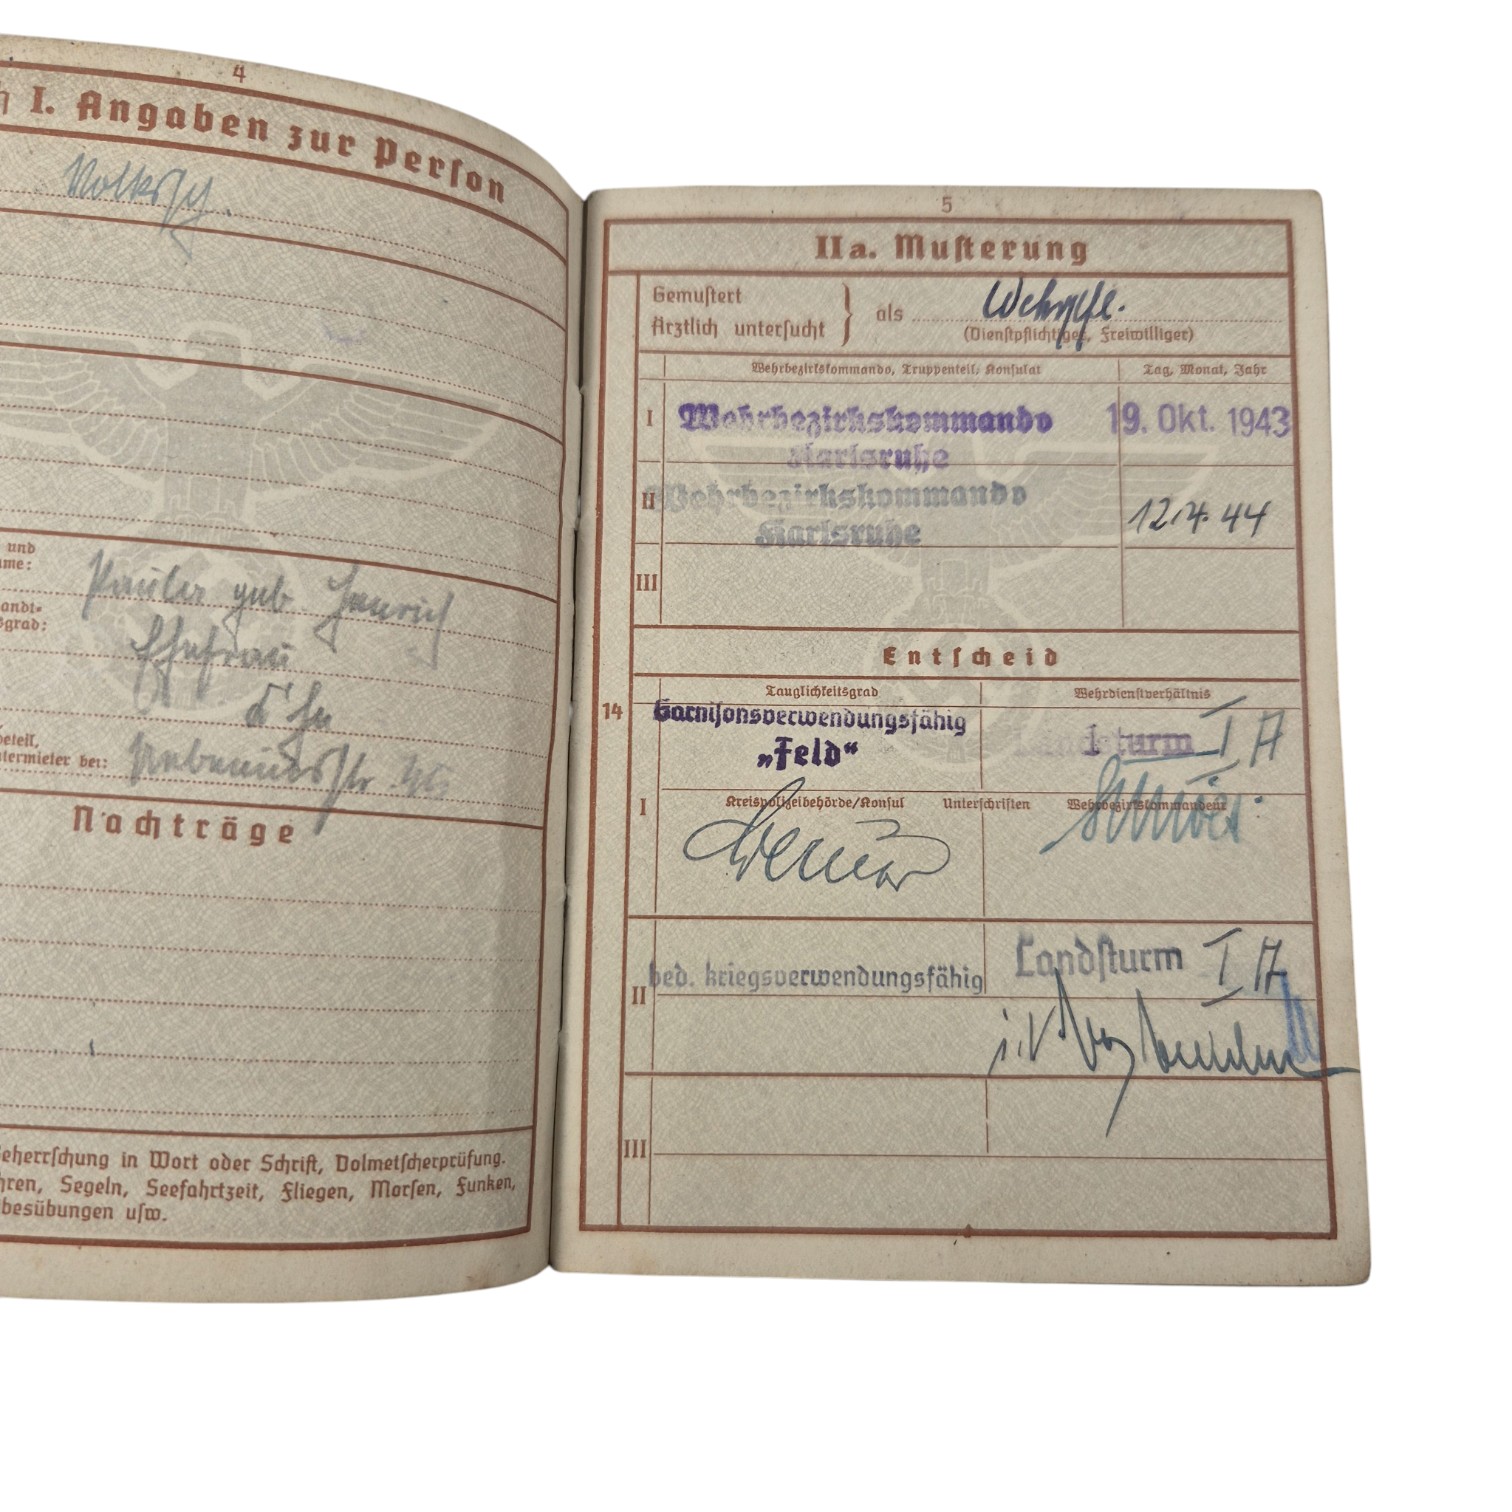 4
I. Angaben zur Person
Volkssch.
und
ame:
andt-
sgrad:
Ehefrau
eteil,
termieter bei:
Nachträge
eherrschung in Wort oder Schrift, Dolmetscherprüfung.
hren, Segeln, Seefahrtzeit, Fliegen, Morsen, Funken,
besübungen usw.
5
IIa. Musterung
Gemustert
Ärztlich untersucht } als Wehrpfl.
(Dienstpflichtiger, Freiwilliger)
Wehrbezirkskommando, Truppenteil, Konsulat Tag, Monat, Jahr
I Wehrbezirkskommando 19. Okt. 1943
Karlsruhe
II Wehrbezirkskommando 12.4.44
Karlsruhe
III
Entscheid
Tauglichkeitsgrad Wehrdienstverhältnis
14 Garnisonsverwendungsfähig Landsturm I A
„Feld“
I Kreispolizeibehörde/Konsul Unterschriften Wehrbezirkskommandeur
Landsturm I A
II bed. kriegsverwendungsfähig
i.V.
III